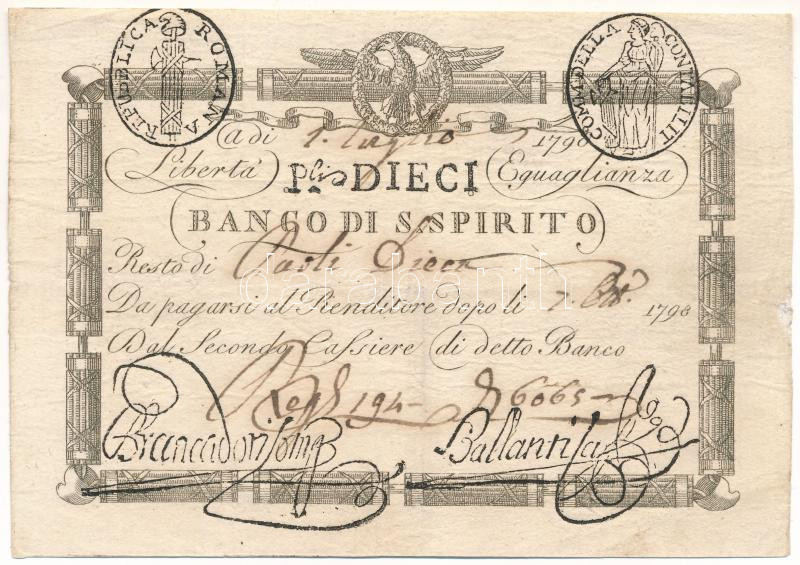 REPUBLICA ROMANA
COMM. DELLA CONTABILIT
A di 1. Luglio 1798
Libertà Pli DIECI Eguaglianza
BANCO DI S. SPIRITO
Resto di Paoli Dieci
Da pagarsi al Renditore dopo li 7. 1798
Dal Secondo Cassiere di detto Banco
Reg. 194 6065
Brancadori
Ballanti
darabanth